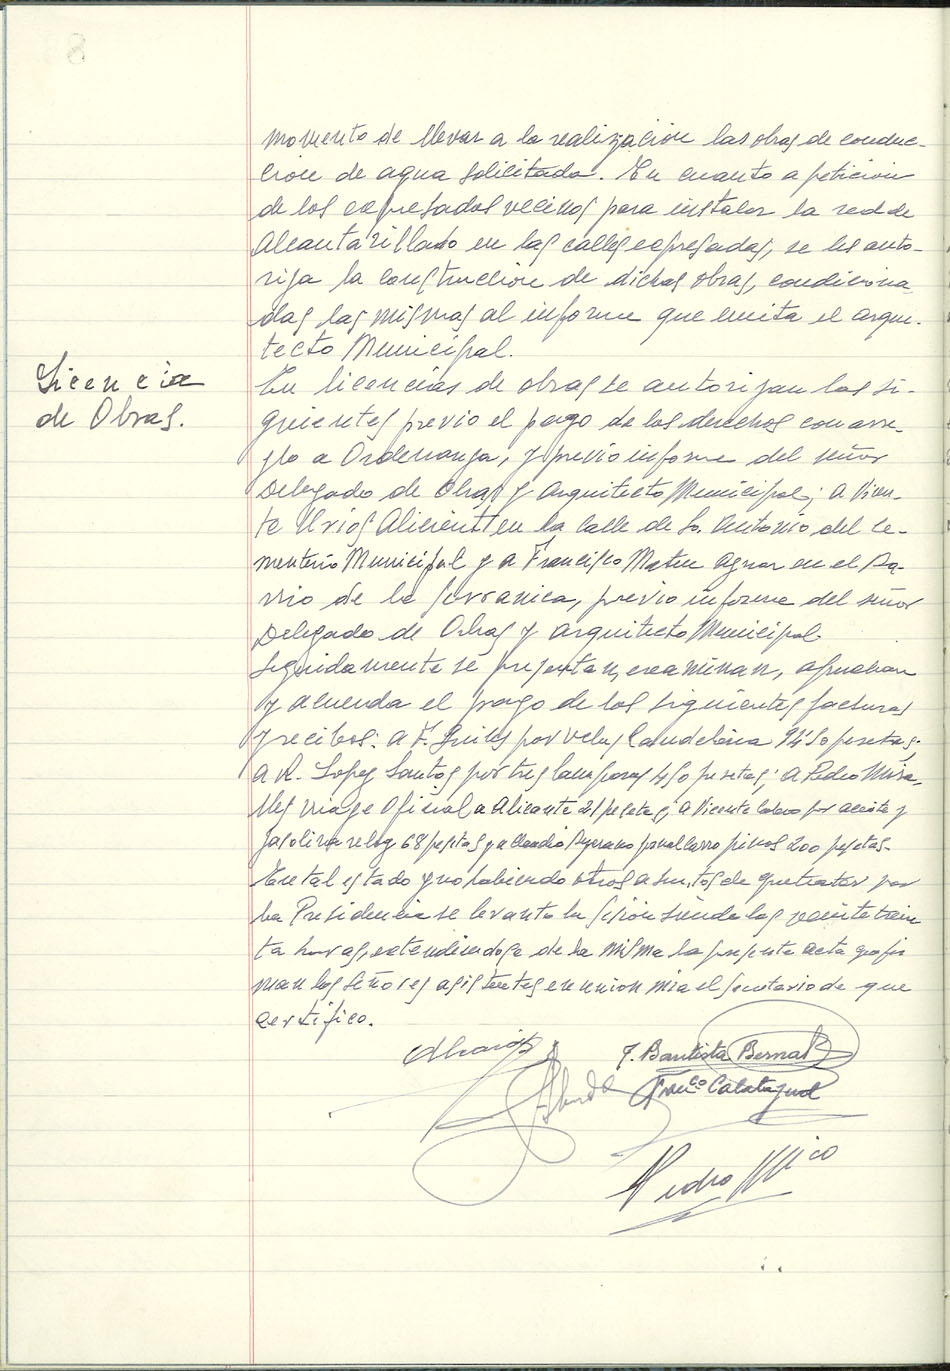 momento de llevar a la realización las obras de conduc-
cion de agua solicitada. En cuanto a peticion
de los expresados vecinos para instalar la red de
Alcantarillado en las calles expresadas, se les auto-
riza la construccion de dichas obras, condiciona
das las mismas al informe que emita el arqui-
tecto Municipal.
Licencia
de Obras.
En licencias de obras se autorizan las si-
guientes previo el pago de los derechos con arre-
glo a Ordenanza, y previo informe del señor
Delegado de Obras y Arquitecto Municipal; a Vicen-
te Urios Alicient en la calle de S. Antonio del Ce-
menterio Municipal y a Francisco Mateu Aznar en el Ba-
rrio de la Serranica, previo informe del señor
Delegado de Obras y Arquitecto Municipal.
Seguidamente se presentan, examinan, aprueban
y acuerda el pago de los siguientes facturas
y recibos: a F. por velas Candelaria pesetas;
a R. Lopez Santos por tres lamparas 450 pesetas; a Pedro Mira-
lles viaje Oficial a Alicante 21 pesetas; a Vicente por aceite y
gasolina reloj 68 pesetas y a Claudio por pinos 200 pesetas.
En tal estado y no habiendo otros asuntos de que tratar por
la Presidencia se levanta la sesion siendo las veinte trein
ta horas, extendiendose de la misma la presente acta que fir
man los señores asistentes en union mia el secretario de que
certifico.
J. Bautista Bernat
Franco Calatayud
Pedro Mico